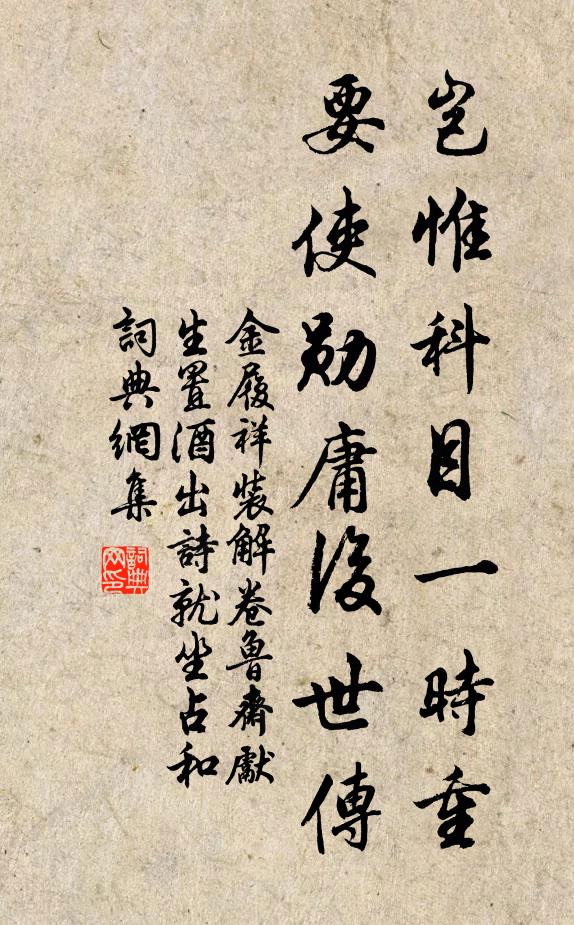 豈惟科目一時重
要使勛庸後世傳
金履祥裝解卷魯齋獻
生置酒出詩就坐占和
詞典網集
詞典
网印